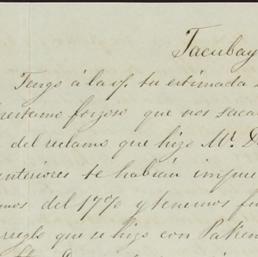 Tacubay
Tengo á la v/. su estimada
restamo forzoso que nos saca
del reclamo que hizo Mr. D
nteriores se habian impue
mos del 17% y tenemos fu
rreglo que se hizo con Paken